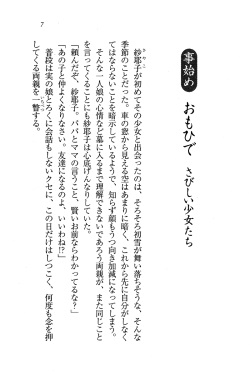 7
事始め
おもひで さびしい少女たち
紗耶子が初めてその少女と出会ったのは、そろそろ初雪が舞い落ちそうな、そんな
季節のことだった。車の窓から見える空はあまりに暗く、これから先に自分がしなく
てはならないことを暗示しているようで、知らず顔もうつ向き加減になってしまう。
そんな一人娘の心情など露ほどまで理解できないであろう両親が、また同じこと
を言ってくるものだから紗耶子は心底げんなりしていた。
「頼んだぞ、紗耶子。パパとママの言うこと、賢いお前ならわかってるな?」
「あの子と仲よくなりなさい。友達になるのよ、いいわね!?」
普段は実の娘とろくに会話もしないクセに、この日だけはしつこく、何度も念を押
してくる両親を一瞥する。